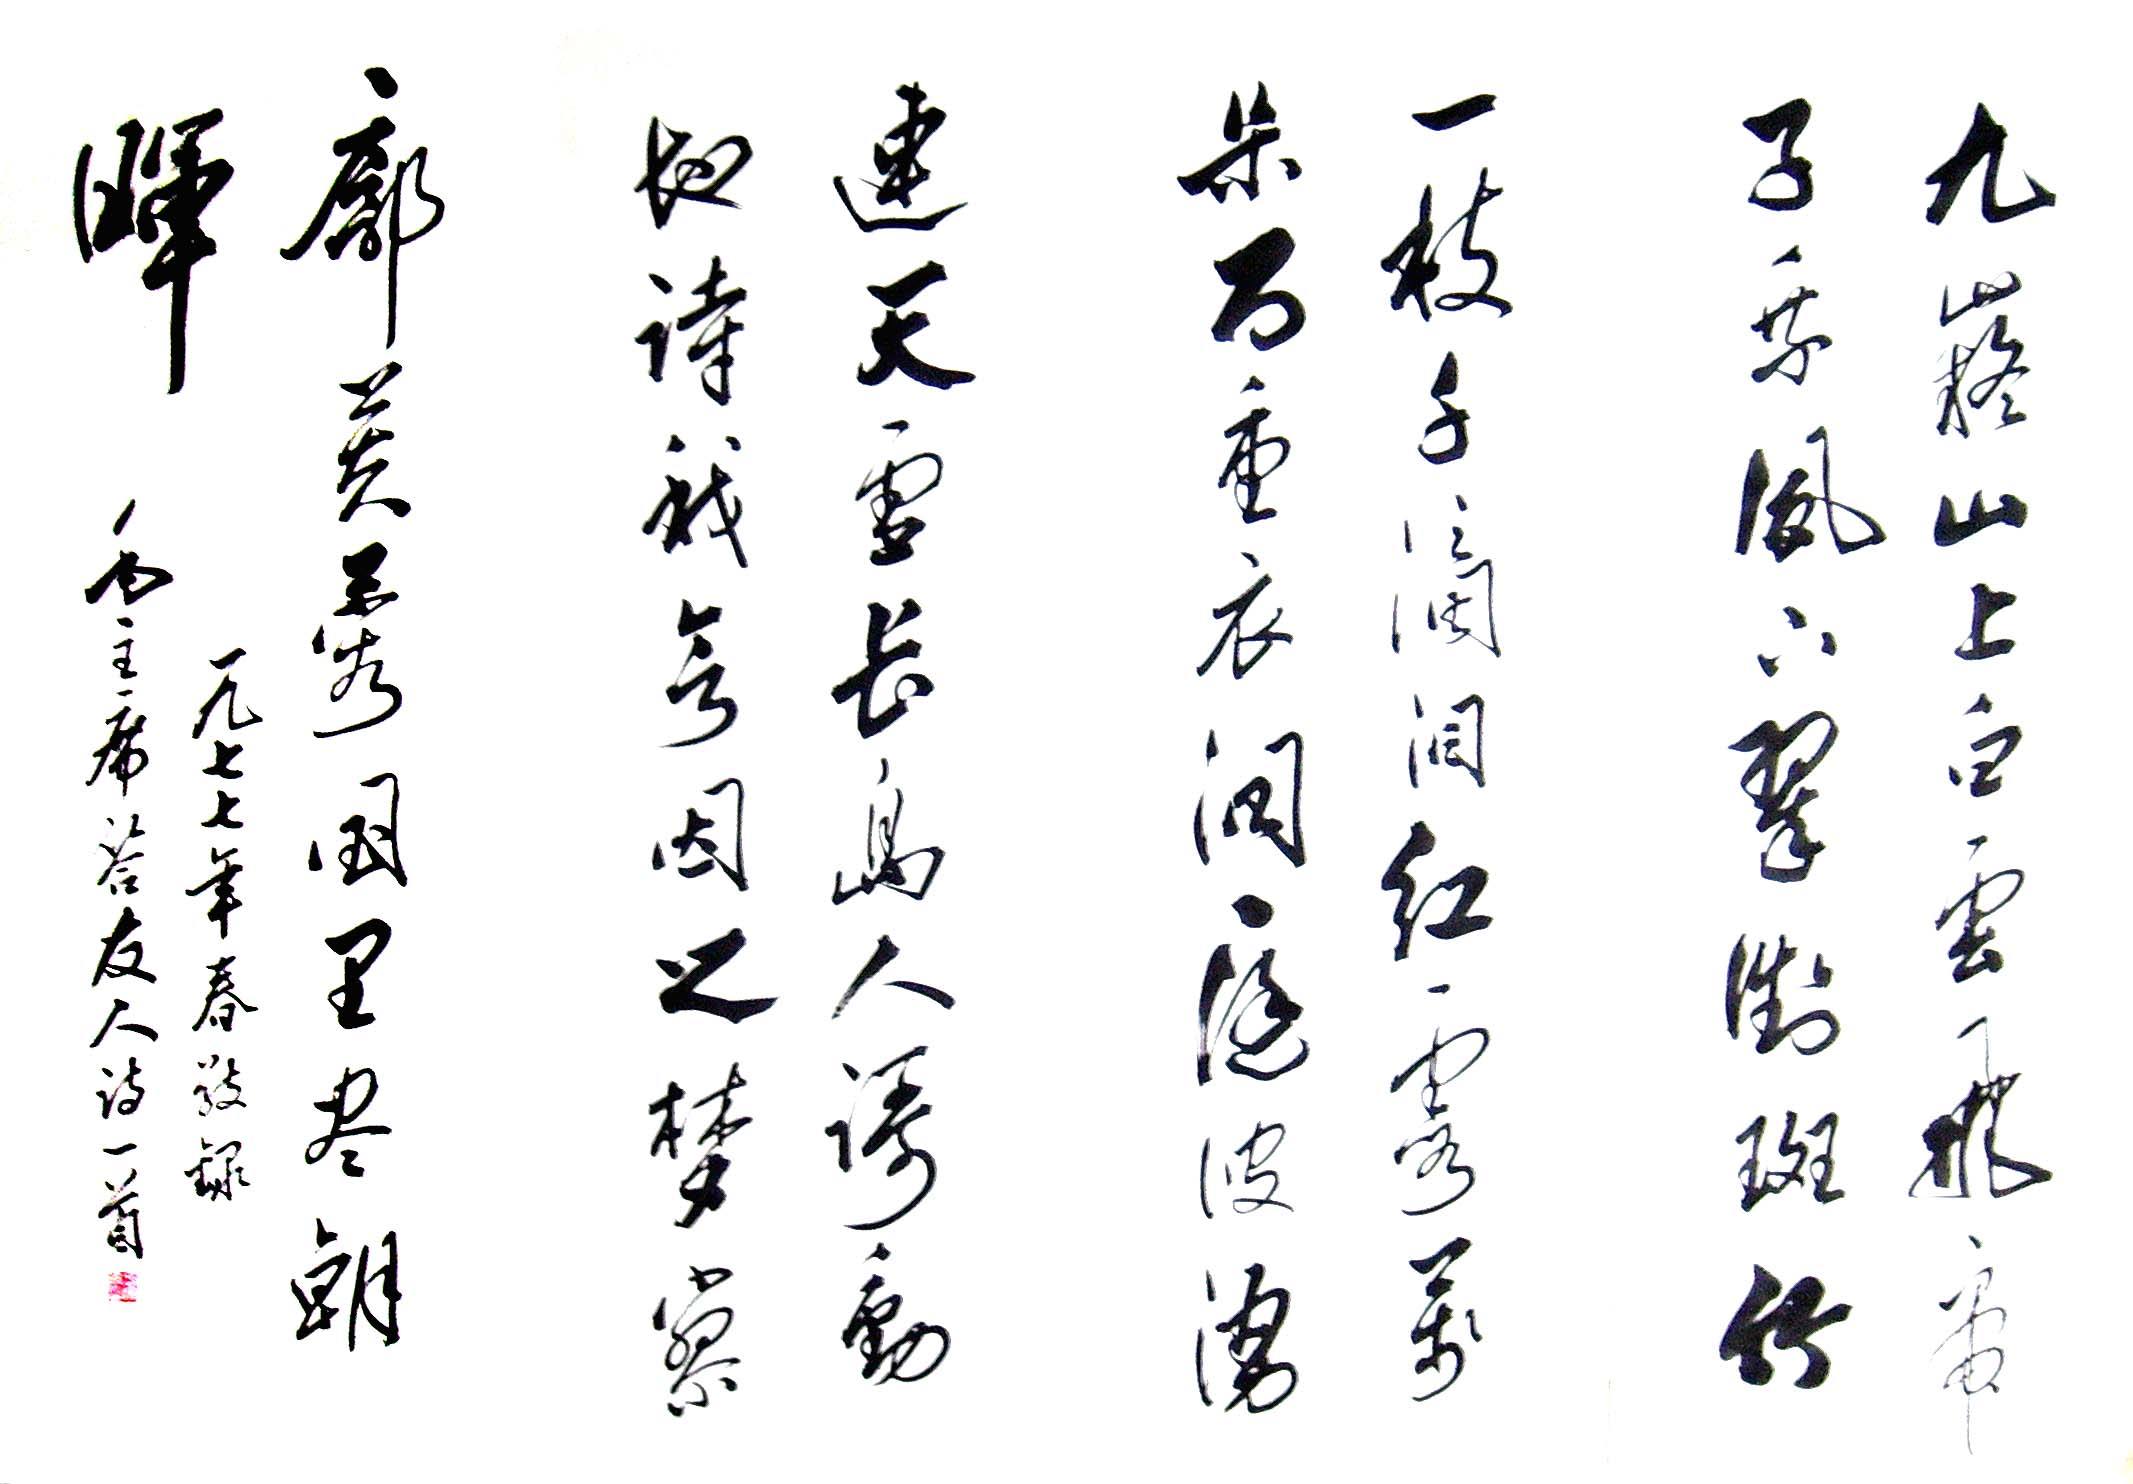 九嶷山上白雲飛帝
子乘風下翠微斑竹
一枝千滴泪红霞萬
朵百重衣洞庭波湧
連天雪长島人謌動
地詩我欲因之梦寥
廓芙蓉国里尽朝
暉
一九七七年春敬録
毛主席答友人诗一首